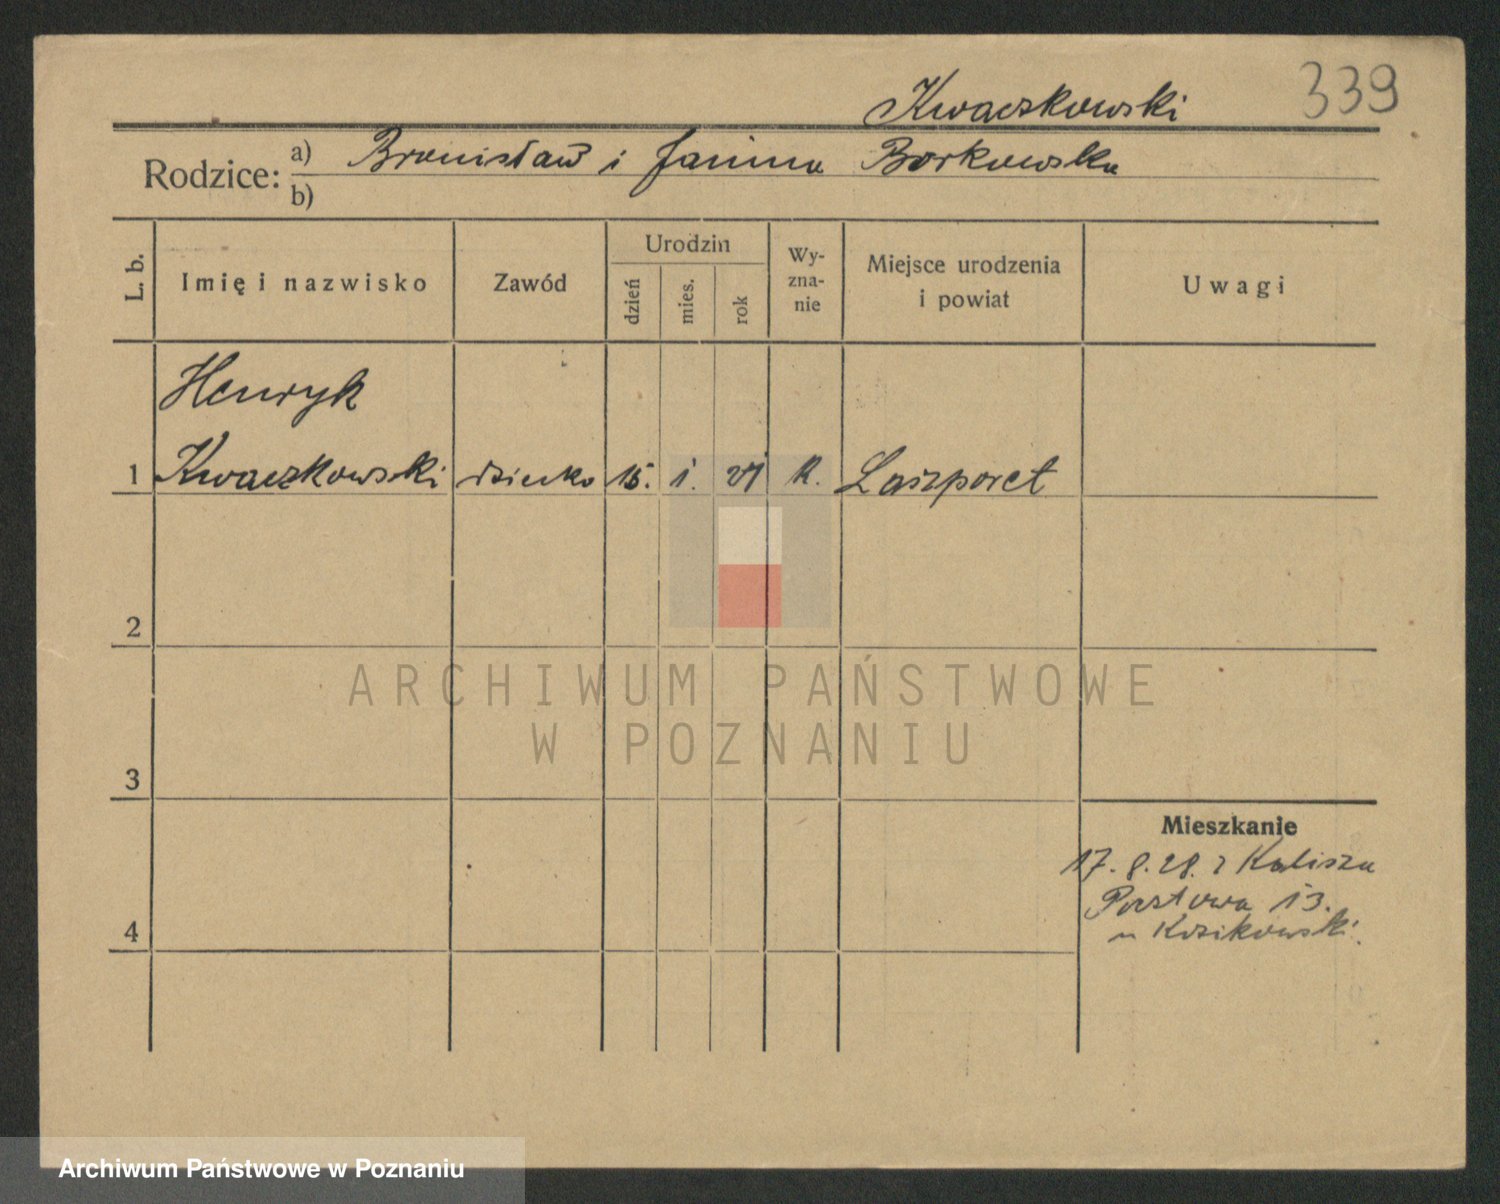 339
Kwaczkowski
Rodzice: a) Bronisław i Janina Borkowska
b)
L. b. Imię i nazwisko Zawód Urodzin dzień mies. rok Wy-zna-nie Miejsce urodzenia i powiat Uwagi
Henryk
1 Kwaczkowski dziecko 15. 1. K.
2
3
4
Mieszkanie
17.8.28. z Kalisza
13.
ARCHIWUM PAŃSTWOWE
W POZNANIU
Archiwum Państwowe w Poznaniu